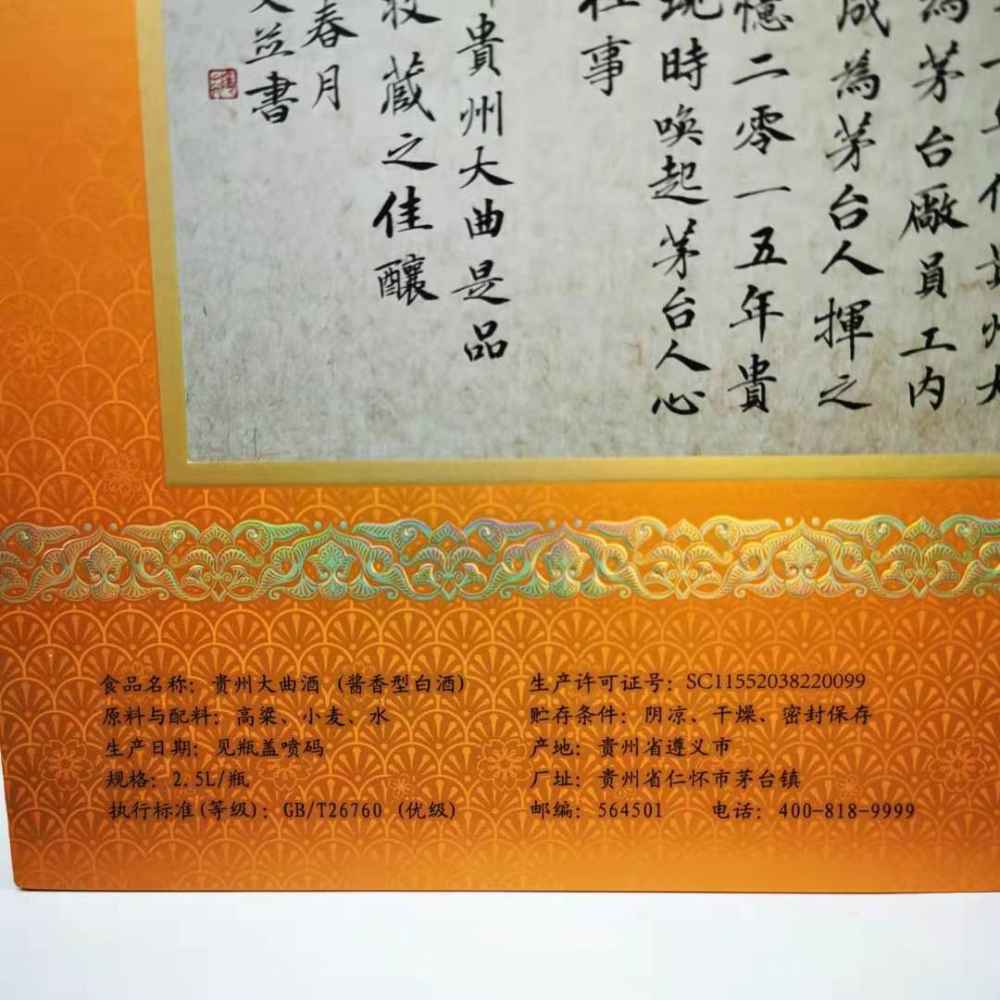 為茅台廠員工内
成為茅台人揮之
憶二零一五年貴
現時喚起茅台人心
事
貴州大曲是品
藏之佳釀
春月
書
食品名称：贵州大曲酒（酱香型白酒）
原料与配料：高粱、小麦、水
生产日期：见瓶盖喷码
规格：2.5L/瓶
执行标准(等级)：GB/T26760（优级）
生产许可证号：SC11552038220099
贮存条件：阴凉、干燥、密封保存
产地：贵州省遵义市
厂址：贵州省仁怀市茅台镇
邮编：564501 电话：400-818-9999